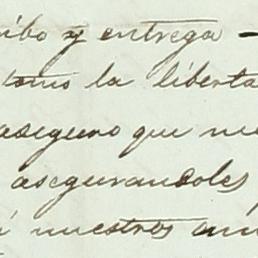 ribo y entrega -
tomo la liberta
aseguro que nu
asegurandoles
i nuestros ami